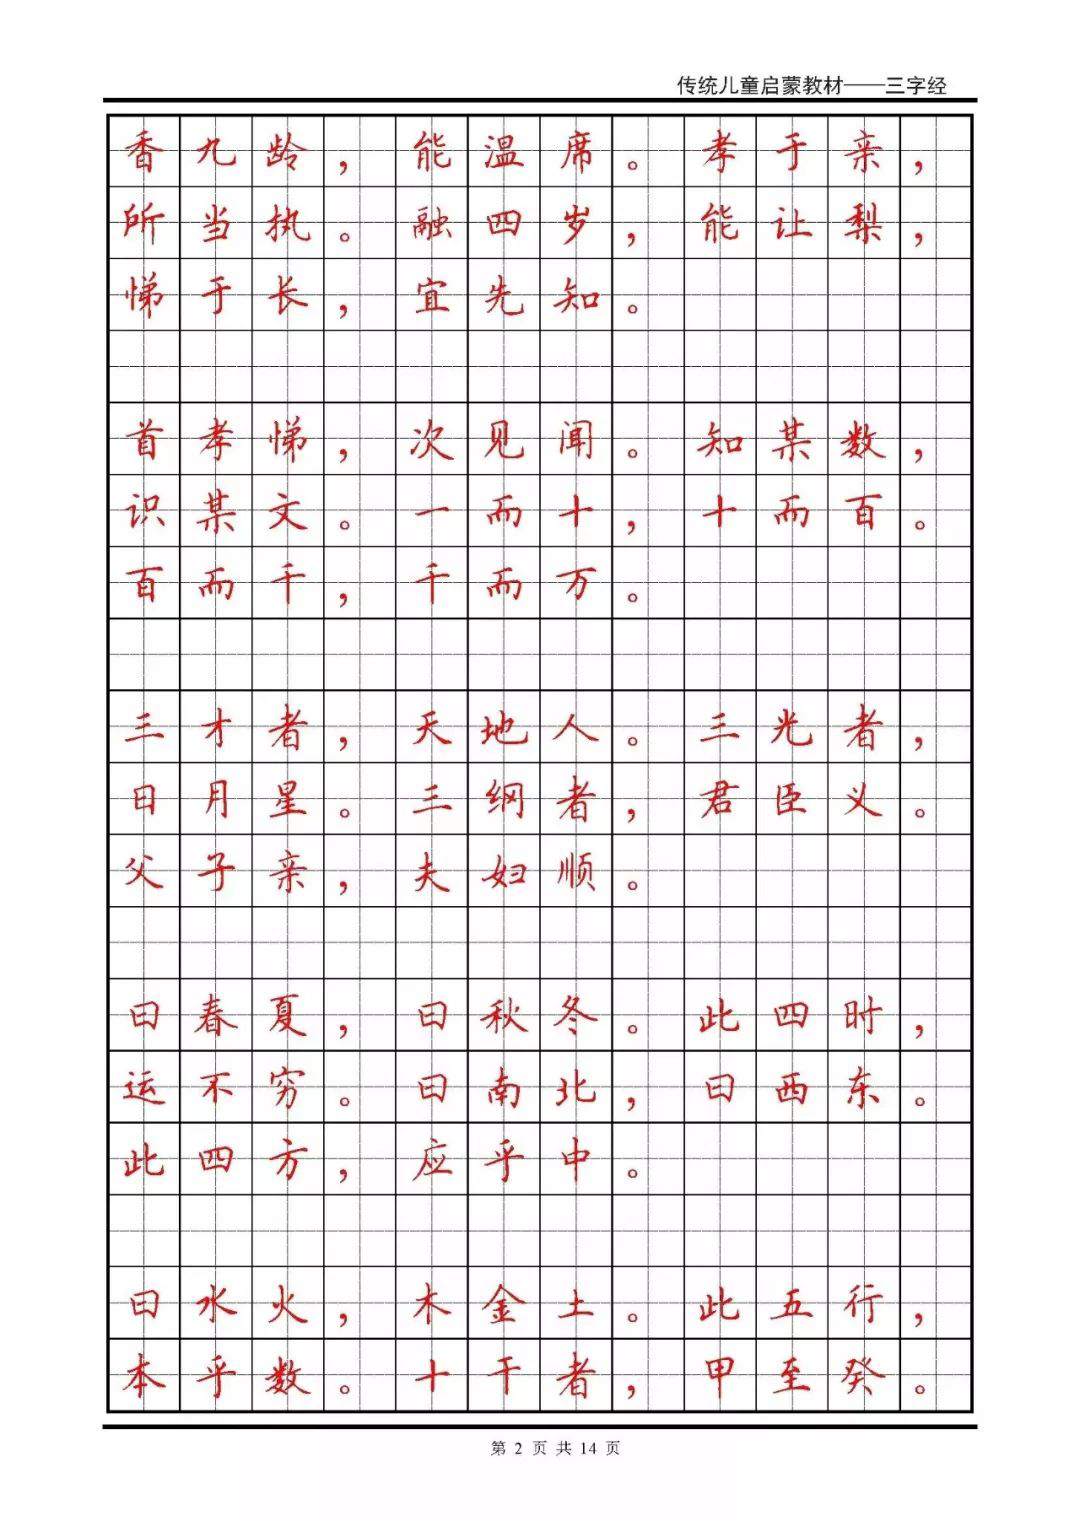 传统儿童启蒙教材——三字经
香九龄，能温席。孝于亲，
所当执。融四岁，能让梨，
悌于长，宜先知。
首孝悌，次见闻。知某数，
识某文。一而十，十而百。
百而千，千而万。
三才者，天地人。三光者，
日月星。三纲者，君臣义。
父子亲，夫妇顺。
曰春夏，曰秋冬。此四时，
运不穷。曰南北，曰西东。
此四方，应乎中。
曰水火，木金土。此五行，
本乎数。十干者，甲至癸。
第 2 页 共 14 页